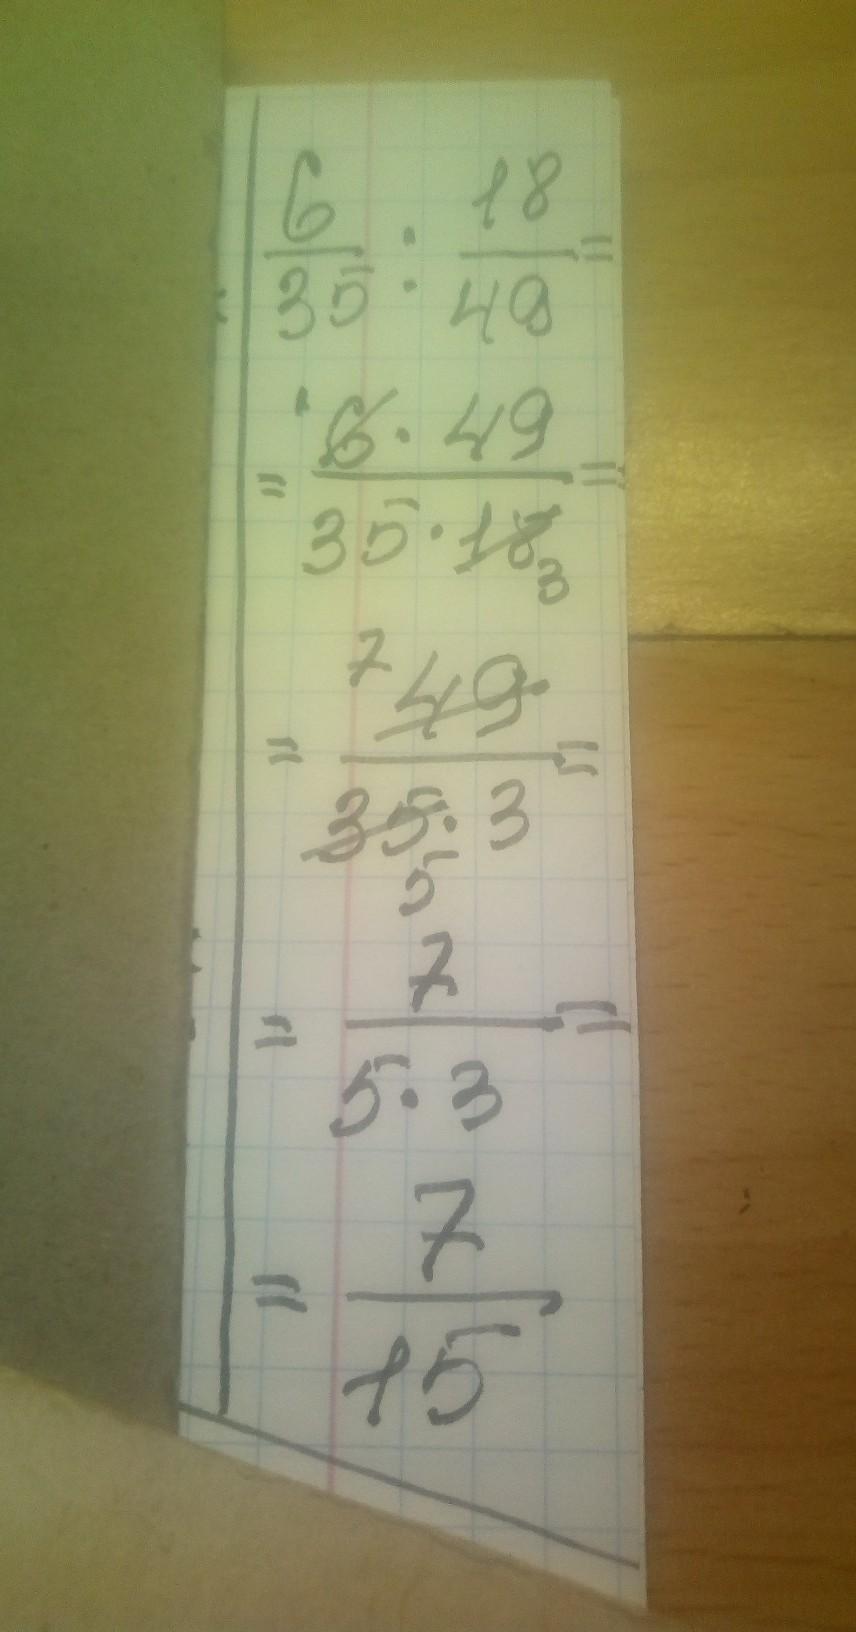 6/35 : 18/49 =
= ¹6 · 49 / 35 · 18 3 =
= 7 49 / 35 · 3 5 =
= 7 / 5 · 3 =
= 7 / 15